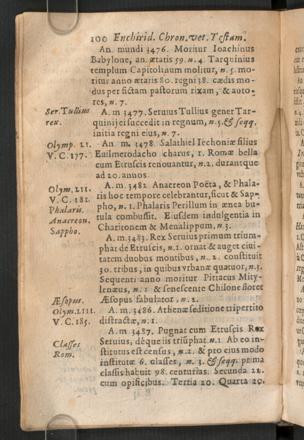 100 Enchirid. Chron. vet. Testam.
An. mundi 3476. Moritur Ioachinus
Babylone, an. ætatis 59. n. 4. Tarquinius
templum Capitolinum molitur, n. 5. mo-
ritur anno ætatis 80. regni 38. cædis mo-
dus per fictam pastorum rixam, & auto-
res, n. 7.
Ser. Tullius
rex.
A. m 3477. Seruius Tullius gener Tar-
quinij ei succedit in regnum, n. 5. & seqq.
initia regni eius, n. 7.
Olymp. LI.
V. C. 177.
An. m. 3478. Salathiel Iechoniæ filius
Euilmerodacho charus, 1. Romæ bella
cum Etruscis renouantur, n. 2. durantque
ad 20. annos.
Olym. LII.
V. C. 181.
Phalaris.
Anacreon.
Sappho.
A. m. 3482. Anacreon Poëta, & Phala-
ris hoc tempore celebrantur, sicut & Sap-
pho, n. 1. Phalaris Perillum in ænea bu-
tula combussit. Eiusdem indulgentia in
Charitonem & Menalippum, n. 3.
A. m. 3483. Rex Seruius primum trium-
phat de Etruscis, n. 1. ornat & auget ciui-
tatem duobus montibus, n. 2. constituit
30. tribus, in quibus vrbanæ quatuor, n. 3.
Sequenti anno moritur Pittacus Mity-
lenæus, n. 1 & senescente Chilone floret
Æsopus.
Æsopus fabulator, n. 2.
Olym. LIII.
V. C. 185.
A. m. 3486. Athenæ seditione tripertito
distractæ, n. 1.
Classes
Rom.
A. m. 3487. Pugnat cum Etruscis Rex
Seruius, déque iis triūphat n. 1. Ab eo in-
stitutus est census, n. 2. & pro eius modo
institutæ 6. classes, n. 3. & seqq. prima
classis habuit 98. centurias. Secunda 22.
cum opificibus. Tertia 20. Quarta 20.